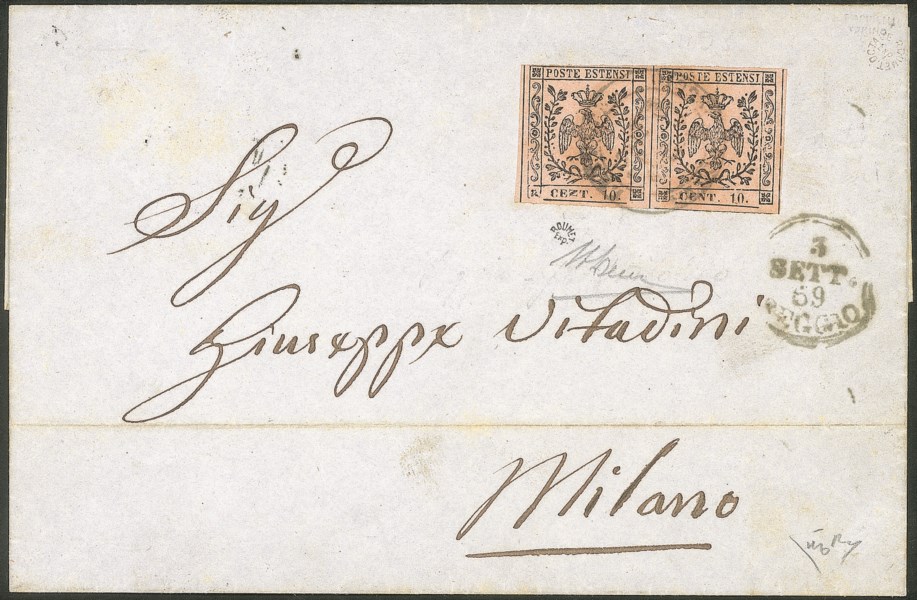 POSTE ESTENSI POSTE ESTENSI
CEZT. 10. CENT. 10.
Sig
ROUMET
EXP.
3
SETT.
59
REGGIO
Giuseppe Vitadini
Milano